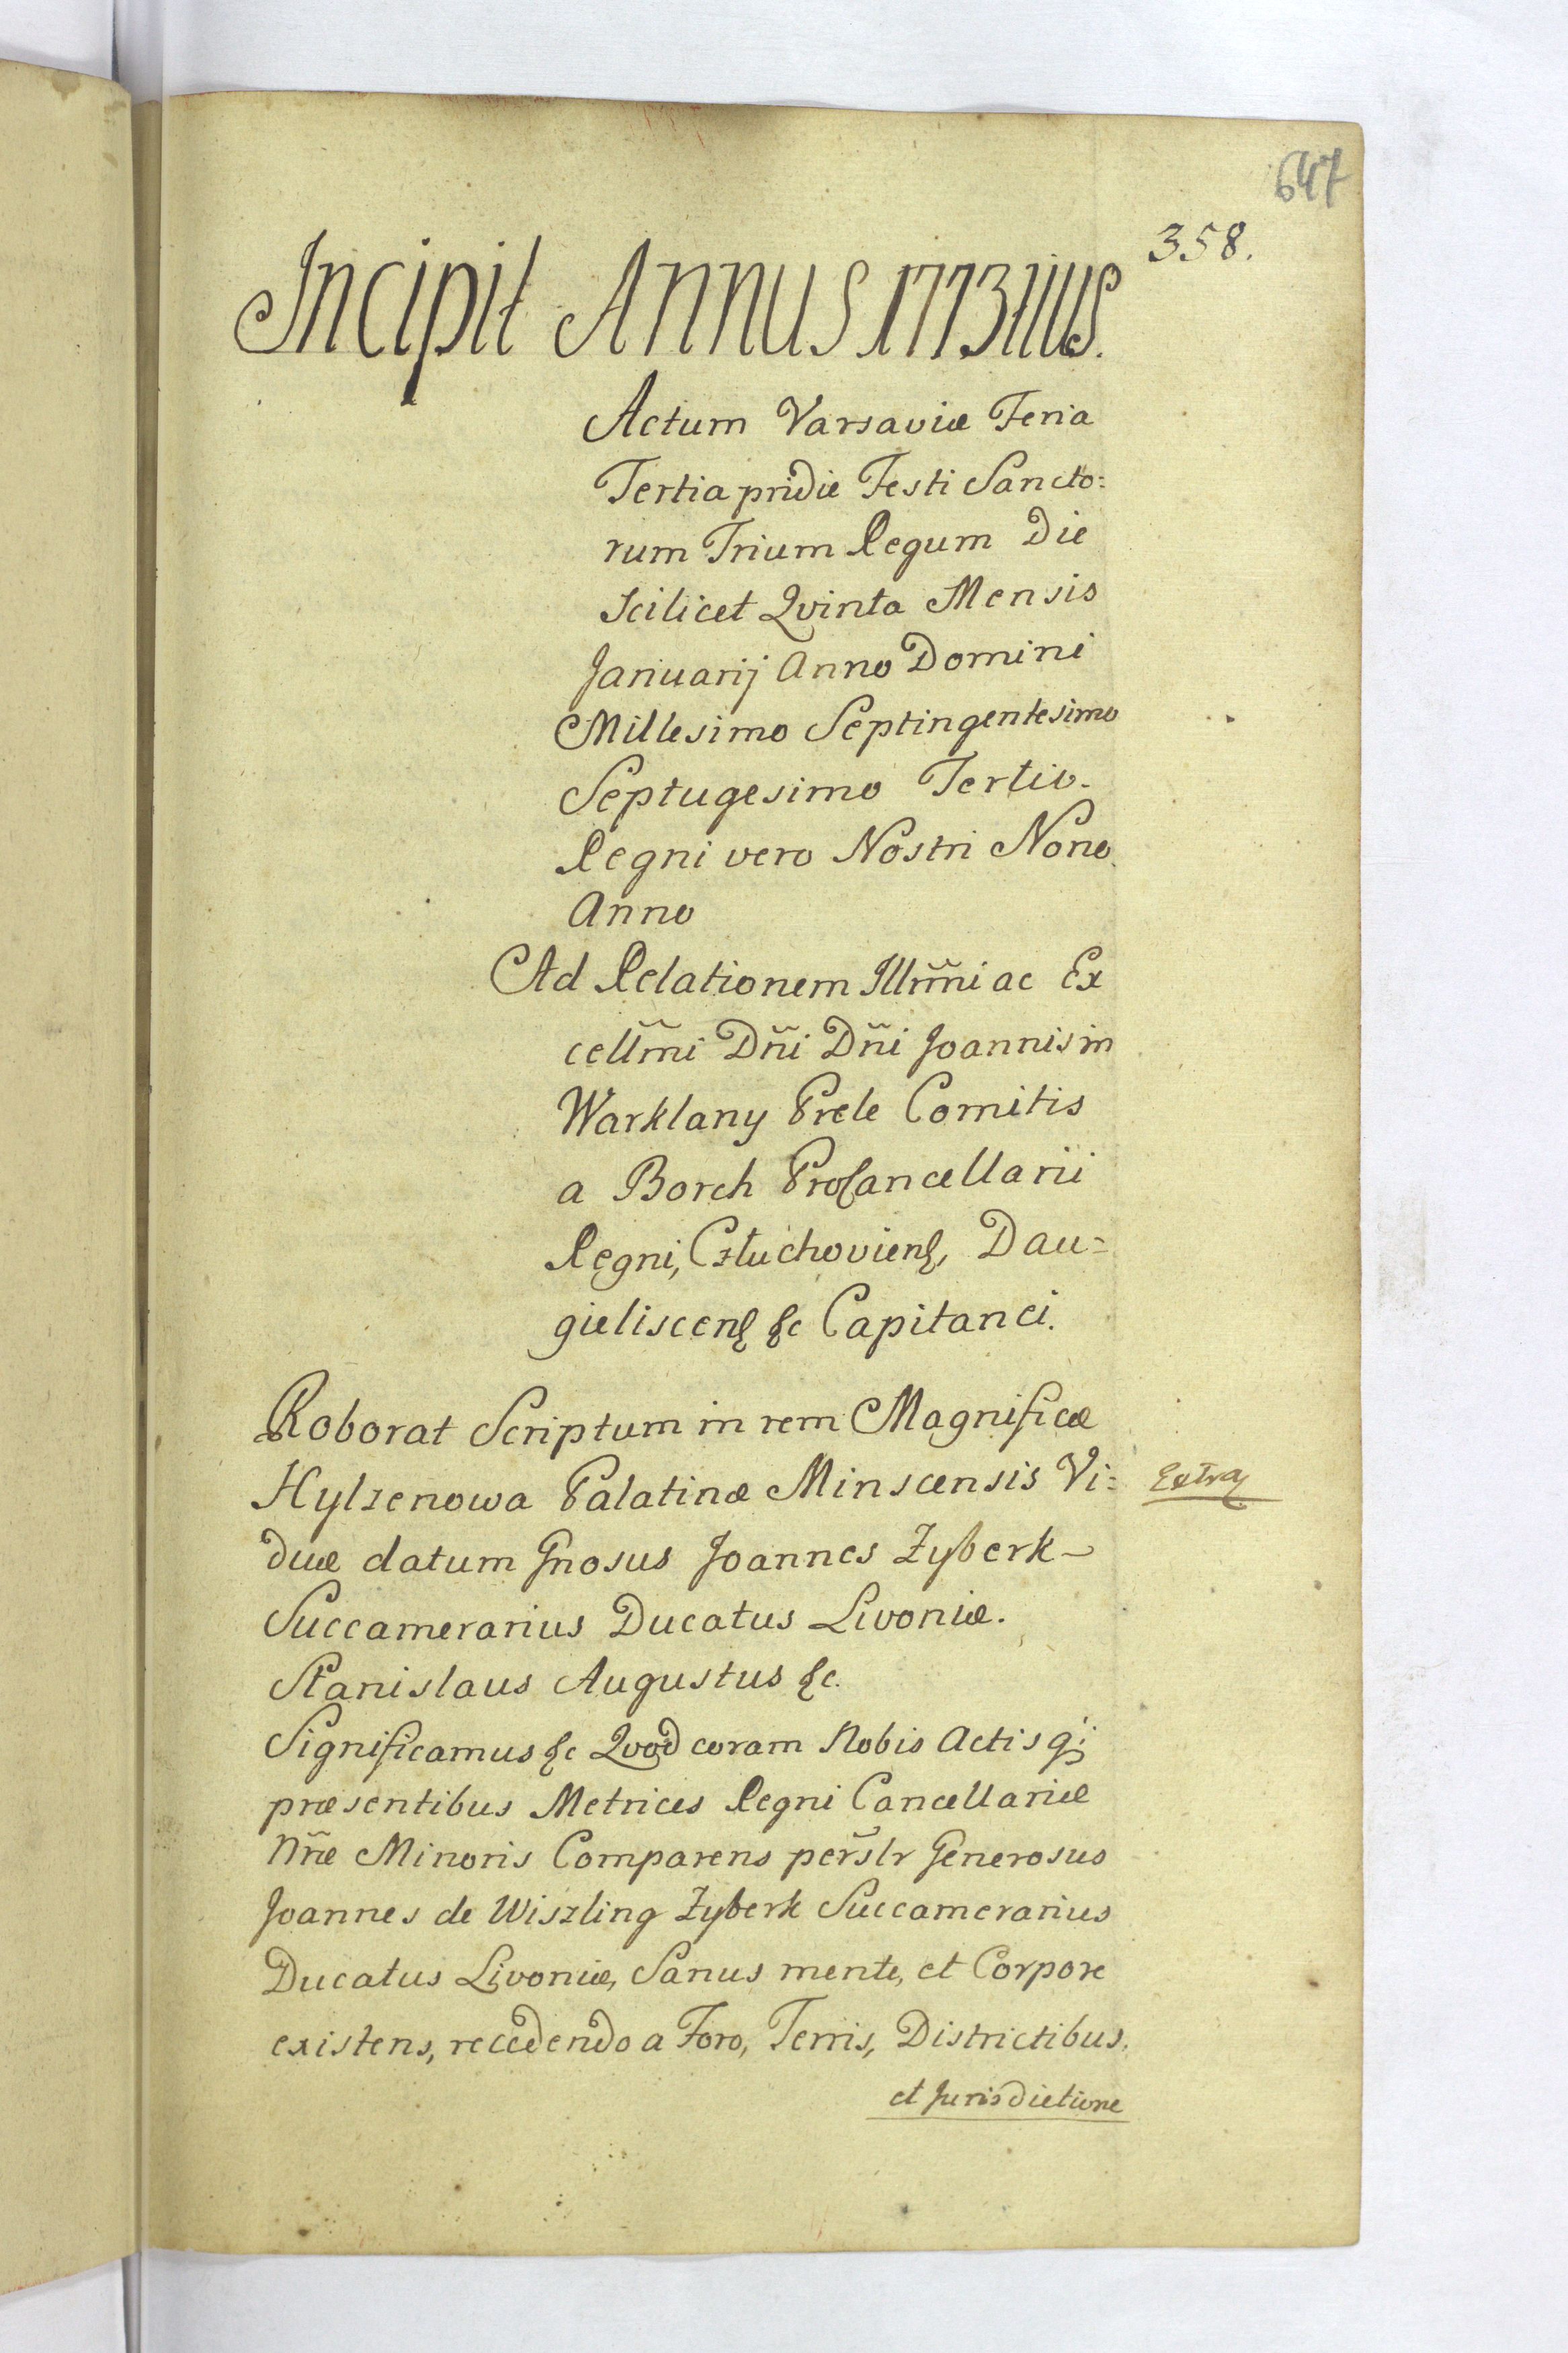 647
358.
Incipit Annus 1773tius.
Actum Varsaviæ Feria
Tertia pridie Festi Sancto:
rum Trium Regum Die
Scilicet Qvinta Mensis
Januarij Anno Domini
Millesimo Septingentesimo
Septugesimo Tertio.
Regni vero Nostri Nono
Anno
Ad Relationem Illm̃i ac Ex
cellm̃i Dñi Dñi Joannis in
Warklany Prele Comitis
a Borch ProCancellarii
Regni, Człuchoviens, Dau=
gieliscens &c Capitanei.
Roborat Scriptum in rem Magnificæ
Hylzenowa Palatinæ Minscensis Vi=
duæ datum Gnosus Joannes Zyberk
Succamerarius Ducatus Livoniæ.
Extra
Stanislaus Augustus &c.
Significamus &c Qvod coram Nobis Actisq;
præsentibus Metrices Regni Cancellariæ
Nr̃æ Minoris Comparens per̃slr Generosus
Joannes de Wiszling Zyberk Succamerarius
Ducatus Livoniæ, Sanus mente, et Corpore
existens, recedendo a Foro, Terris, Districtibus,
et Jurisdictione